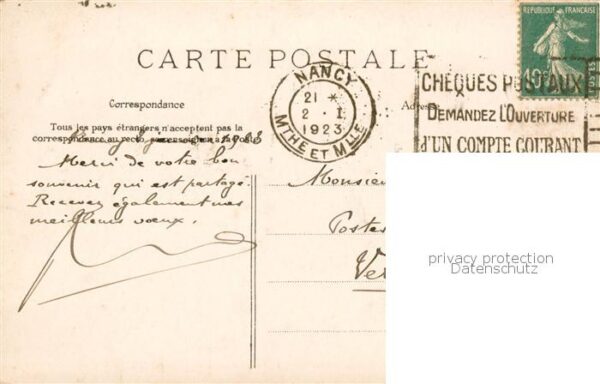 CARTE POSTALE
REPUBLIQUE FRANÇAISE
NANCY
21 *
2 - I
1923
MTHE ET MLLE
CHÈQUES POSTAUX
DEMANDEZ L'OUVERTURE
d'UN COMPTE COURANT
Correspondance
Tous les pays étrangers n'acceptent pas la
correspondance au recto
Merci de votre bon
souvenir qui est partagé.
Recevez également nos
meilleurs vœux.
Monsieur
Postes
Ver
privacy protection
Datenschutz